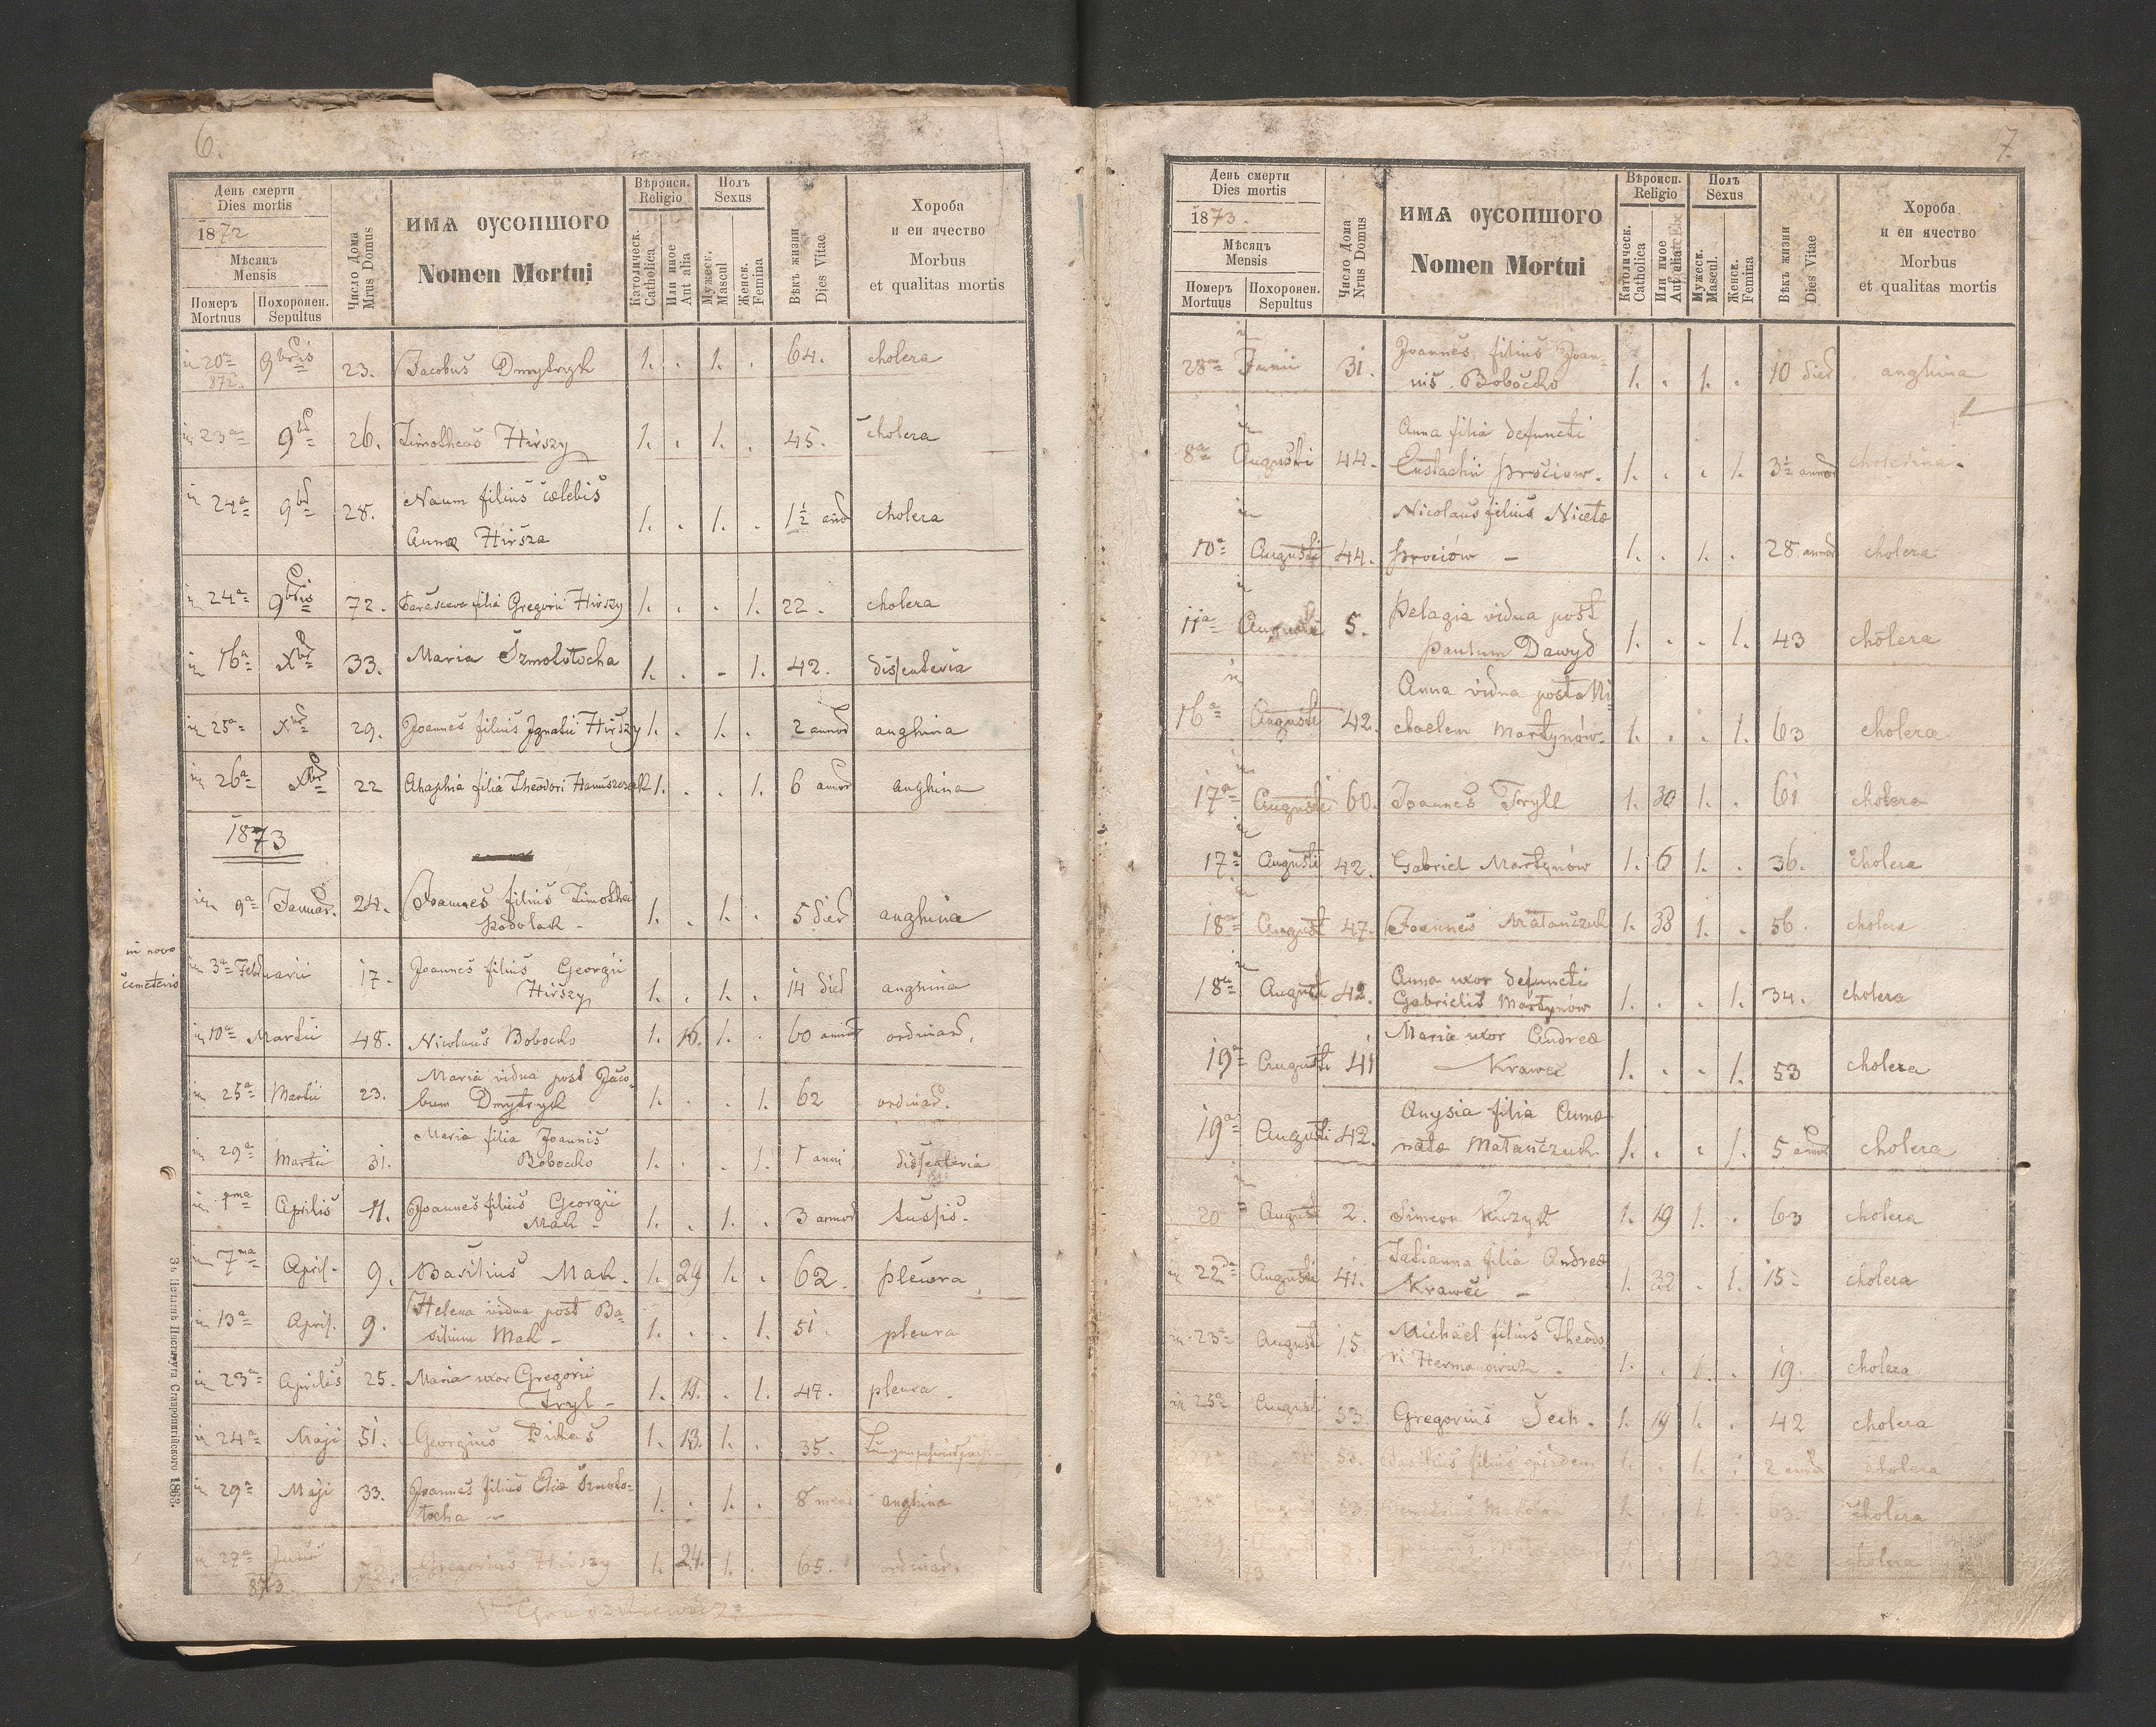 6.
День смерти
Dies mortis
1872
Мѣсяцъ
Mensis
Померъ
Mortuus
Похоронен.
Sepultus
Число Дома
Mrus Domus
ИМѦ ОУСОПШОГО
Nomen Mortui
Вѣроисп.
Religio
Католическ.
Catholica
Или иное
Aut alia
Полъ
Sexus
Мужеск.
Mascul
Женск.
Femina
Вѣкъ жизни
Dies Vitae
Хороба
и еи ячество
Morbus
et qualitas mortis
in 20a 872. 9bris 23. Jacobus Dmytryk 1. . 1. . 64. cholera
in 23a 9b 26. Timotheus Hirszy 1. . 1. . 45. cholera
in 24a 9b 28. Naum filius cœlebis
Annæ Hirsza 1. . 1. . 1½ cholera
in 24a 9bris 72. Parasceve filia Gregorii Hirszy 1. . . 1. 22. cholera
in 16a Xb 33. Maria Szmolotocha 1. . - 1. 42. dissenteria
in 25a Xb 29. Joannes filius Ignatii Hirszy 1. . 1. . 2 annor anghina
in 26a Xb 22 Ahaphia filia Theodori 1. . . 1. 6 annor anghina
1873
in 9a Januar. 24. Joannes filius Timothei
Podolak - 1. . 1. . 5 dier anghina
in novo
cemeterio
in 3a Februarii 17. Joannes filius Georgii
Hirszy 1. . 1. . 14 dier anghina
in 10a Martii 48. Nicolaus Bobocko 1. 16. 1. . 60 annor ordinar.
in 25a Martii 23. Maria vidua post Jaco-
bum Dmytryk 1. . . 1. 62 ordinar.
in 29a Martii 31. Maria filia Joannis
Bobocko 1. . . 1. 1 anni dissenteria
in 1ma Aprilis 11. Joannes filius Georgii
Mak - 1. . 1. . 3 annor tussis.
in 7ma April. 9. Basilius Mak. 1. 29 1. . 62. pleura
in 13a April. 9. Helena vidua post Ba-
silium Mak - 1. . . 1. 51. pleura
in 23a Aprilis 25. Maria uxor Gregorii
Tryl - 1. 11. . 1. 47. pleura.
in 24a Maji 51. Georgius 1. 13. 1. . 35.
in 29a Maji 33. Joannes filius Eliæ Szmolo-
tocha - 1. . 1. . 8 mens anghina
in 27a Junii 873. 72. Gregorius Hirszy 1. 24. 1. . 65. ordinar.
Зъ Печатнѣ Института Ставропигійского 1863.
7.
День смерти
Dies mortis
1873.
Мѣсяцъ
Mensis
Померъ
Mortuus
Похоронен.
Sepultus
Число Дома
Nrus Domus
ИМѦ ОУСОПШОГО
Nomen Mortui
Вѣроисп.
Religio
Католическ.
Catholica
Или иное
Aut
Полъ
Sexus
Мужеск.
Mascul.
Женск.
Femina
Вѣкъ жизни
Dies Vitae
Хороба
и еи ячество
Morbus
et qualitas mortis
in 28a Junii 31. Joannes filius Joan-
nis Bobocko 1. . 1. . 10 dier anghina
in 8a Augusti 44. Anna filia defuncti
Eustachii Prociow. 1. . . 1. 3½ annor
in 10a Augusti 44. Nicolaus filius Nicetæ
Prociów - 1. . 1. . 28 annor cholera
in 11a Augusti 5. Pelagia vidua post
Dawyd 1. . . 1. 43 cholera
in 16a Augusti 42. Anna vidua post Mi-
chaelem Martynów. 1. . . 1. 63 cholera
in 17a Augusti 60. Joannes Tryll 1. 30 1. . 61 cholera
in 17a Augusti 42. Gabriel Martynów 1. 6 1. . 36. cholera
in 18a August 47. Joannes Matańczuk 1. 38 1. . 56. cholera
in 18a August 42. Anna uxor defuncti
Gabrielis Martynów 1. . . 1. 34. cholera
19a Augusti 41 Maria uxor Andreæ
Krawec 1. . . 1. 53 cholera
19a Augusti 42. Anysia filia Annæ
natæ Matańczuk 1. . . 1. 5 annor cholera
in 20 August 2. Simeon Kuzyk 1. 19 1. . 63 cholera
in 22da Augusti 41. Tatianna filia Andreæ
Krawec - 1. 32 . 1. 15. cholera
in 23a August 15. Michael filius Theodo-
ri 1. . 1. . 19. cholera
in 25a August 53 Gregorius 1. 19 1. . 42 cholera
53. Basilius filius ejusdem 1. . 1. . 2 annor cholera
August 53. 1. . 1. . 63. cholera
cholera